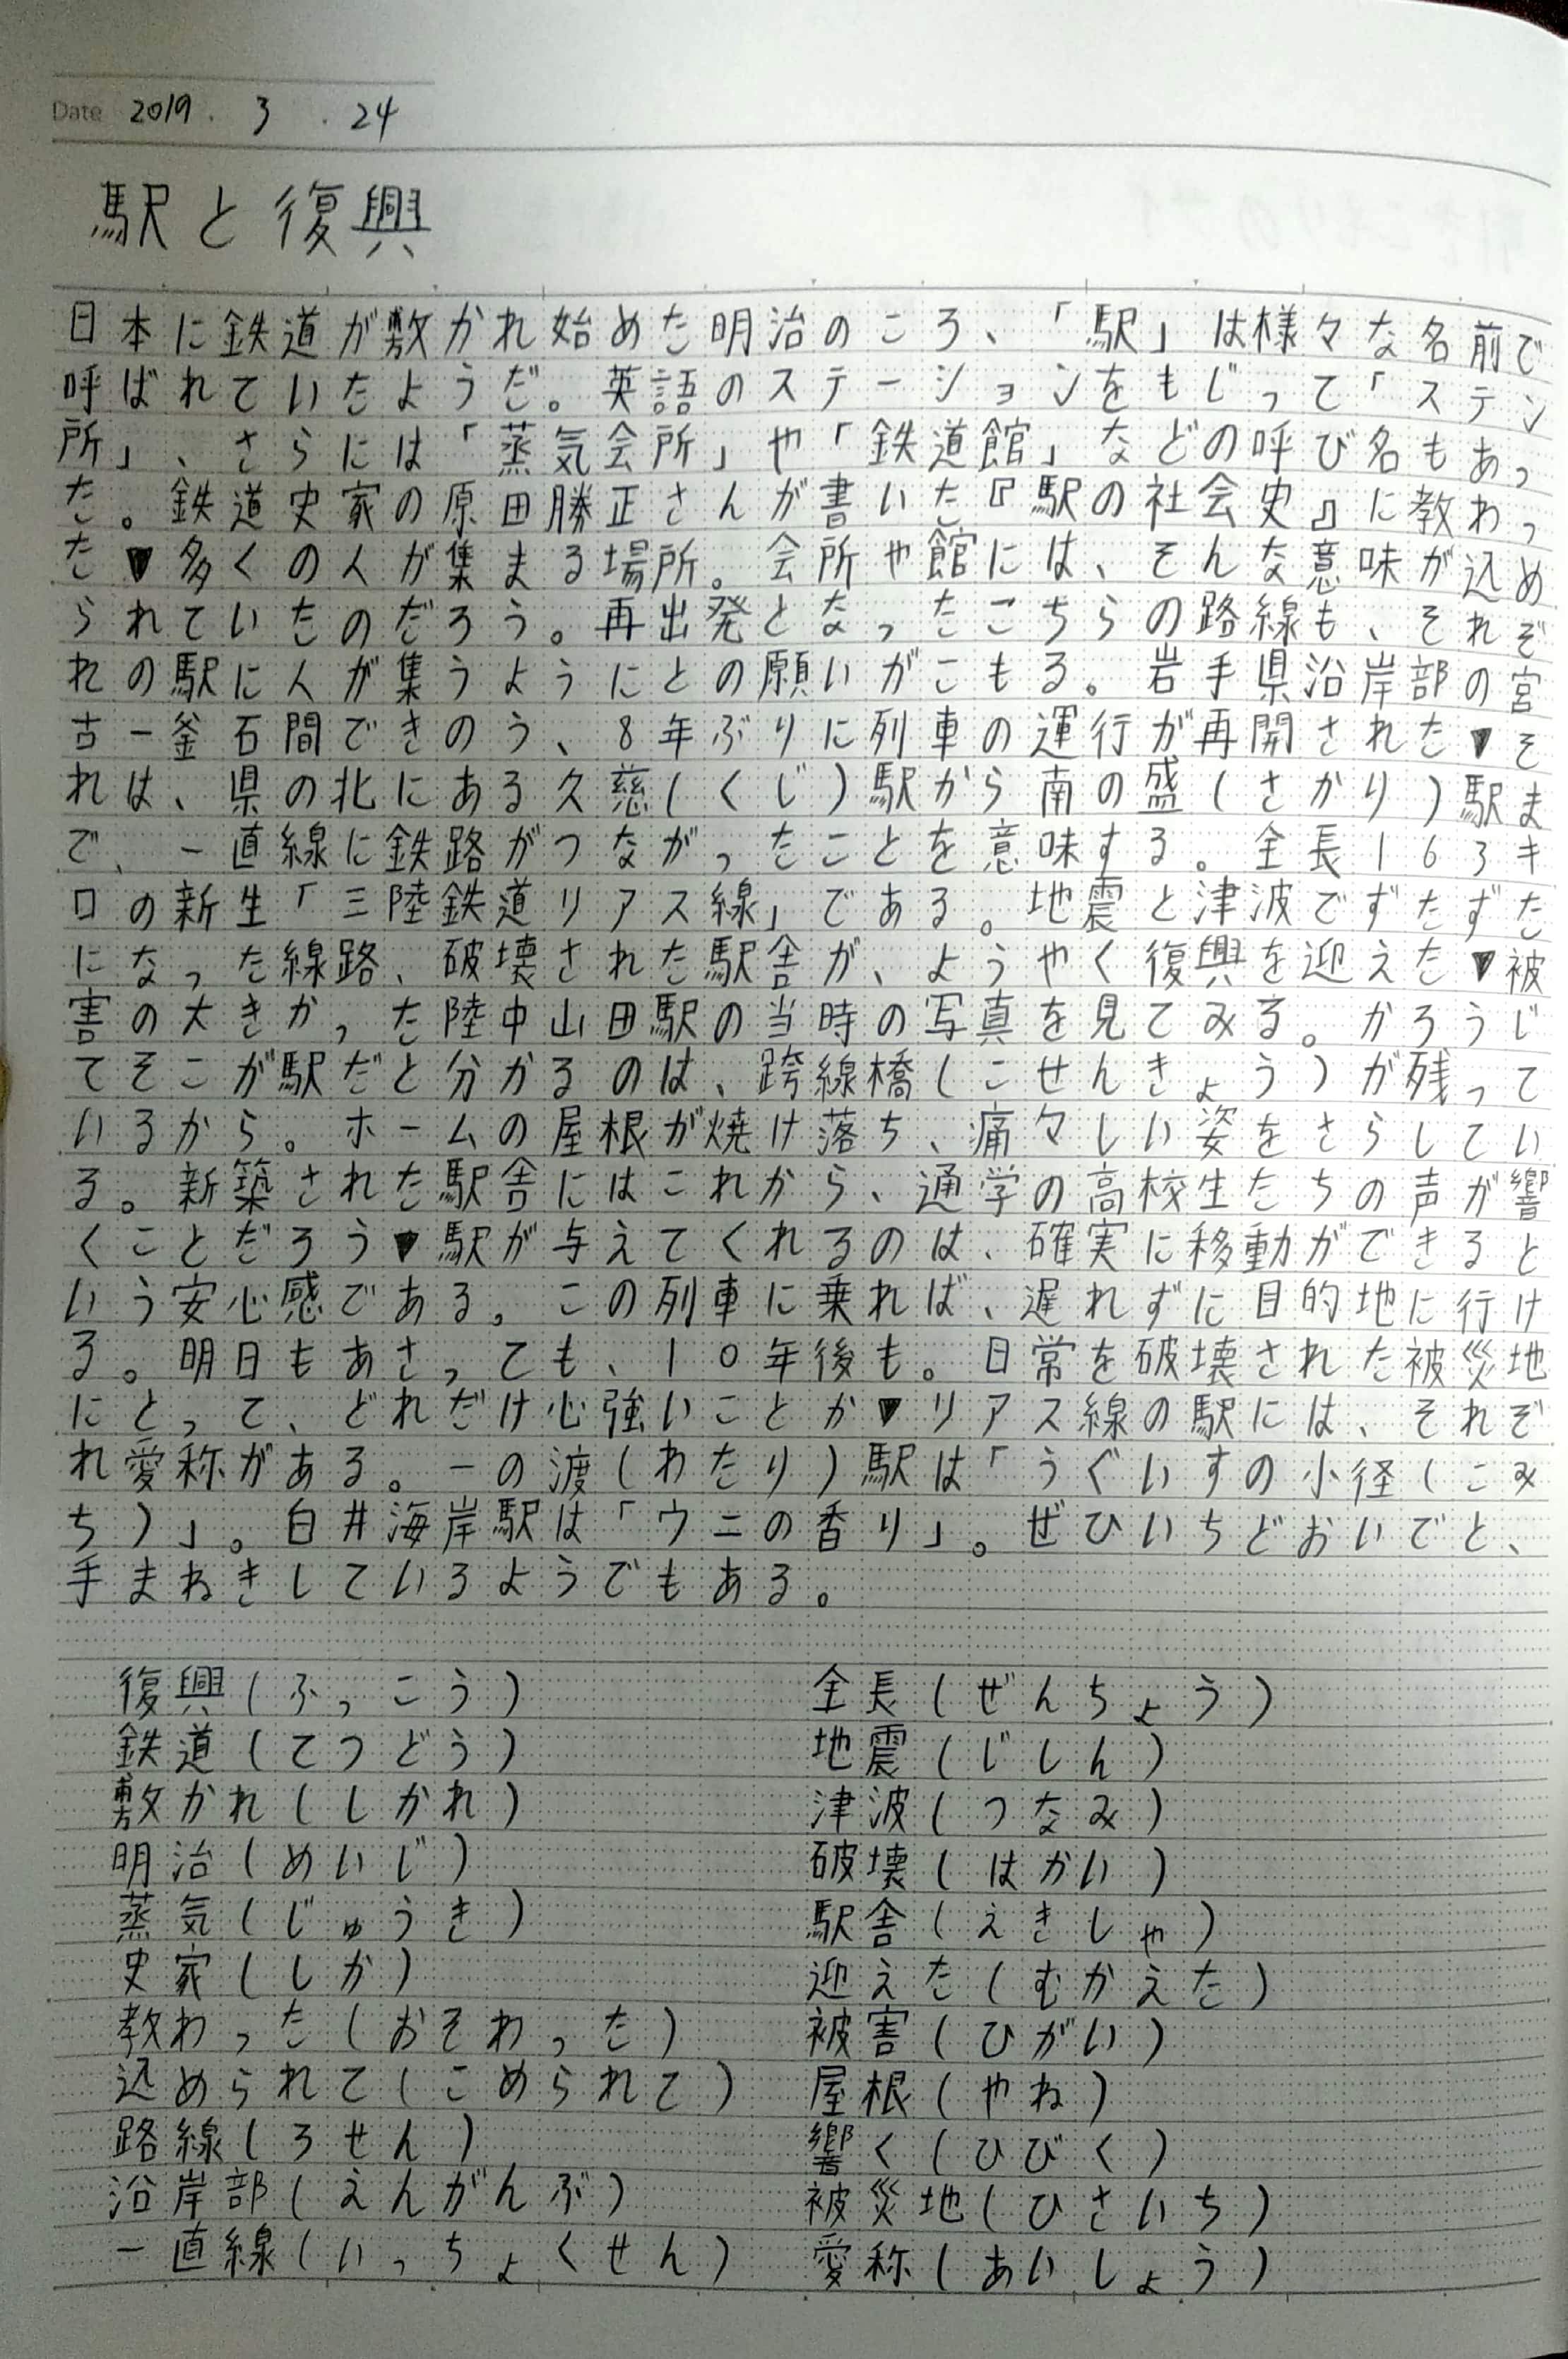 Date 2019 . 3 . 24
駅と復興
日本に鉄道が敷かれ始めた明治のころ、「駅」は様々な名前で
呼ばれていたようだ。英語のステーションをもじって「ステン
所」、さらには「蒸気会所」や「鉄道館」などの呼び名もあっ
た。鉄道史家の原田勝正さんが書いた『駅の社会史』に教わっ
た▼多くの人が集まる場所。会所や館には、そんな意味が込め
られていたのだろう。再出発となったこちらの路線も、それぞ
れの駅に人が集うようにとの願いがこもる。岩手県沿岸部の宮
古ー釜石間できのう、8年ぶりに列車の運行が再開された▼そ
れは、県の北にある久慈(くじ)駅から南の盛(さかり)駅ま
で、一直線に鉄路がつながったことを意味する。全長163キ
ロの新生「三陸鉄道リアス線」である。地震と津波でずたずた
になった線路、破壊された駅舎が、ようやく復興を迎えた▼被
害の大きかった陸中山田駅の当時の写真を見てみる。かろうじ
てそこが駅だと分かるのは、跨線橋(こせんきょう)が残って
いるから。ホームの屋根が焼け落ち、痛々しい姿をさらしてい
る。新築された駅舎にはこれから、通学の高校生たちの声が響
くことだろう▼駅が与えてくれるのは、確実に移動ができると
いう安心感である。この列車に乗れば、遅れずに目的地に行け
る。明日もあさっても、10年後も。日常を破壊された被災地
にとって、どれだけ心強いことか▼リアス線の駅には、それぞ
れ愛称がある。一の渡(わたり)駅は「うぐいすの小径(こみ
ち)」。白井海岸駅は「ウニの香り」。ぜひいちどおいでと、
手まねきしているようでもある。
復興(ふっこう)
鉄道(てつどう)
敷かれ(しかれ)
明治(めいじ)
蒸気(じゅうき)
史家(しか)
教わった(おそわった)
込められて(こめられて)
路線(ろせん)
沿岸部(えんがんぶ)
一直線(いっちょくせん)
全長(ぜんちょう)
地震(じしん)
津波(つなみ)
破壊(はかい)
駅舎(えきしゃ)
迎えた(むかえた)
被害(ひがい)
屋根(やね)
響く(ひびく)
被災地(ひさいち)
愛称(あいしょう)